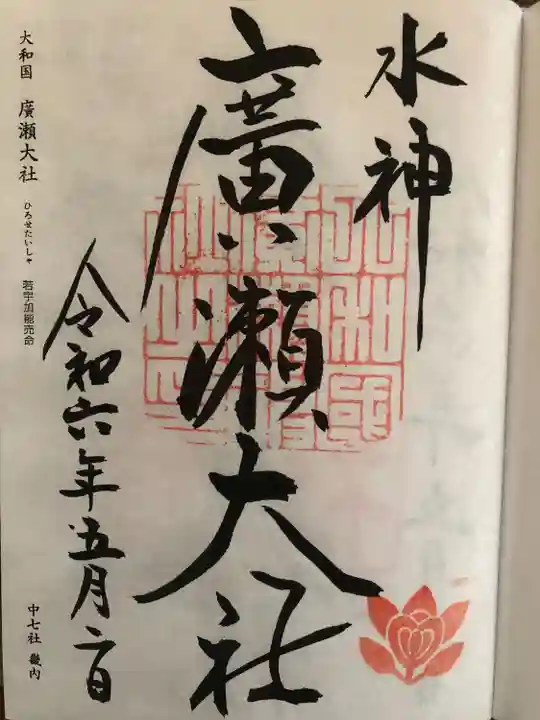 水神
廣瀬大社
令和六年五月二日
大和国 廣瀬大社 ひろせたいしゃ 若宇加能売命
中七社 畿内